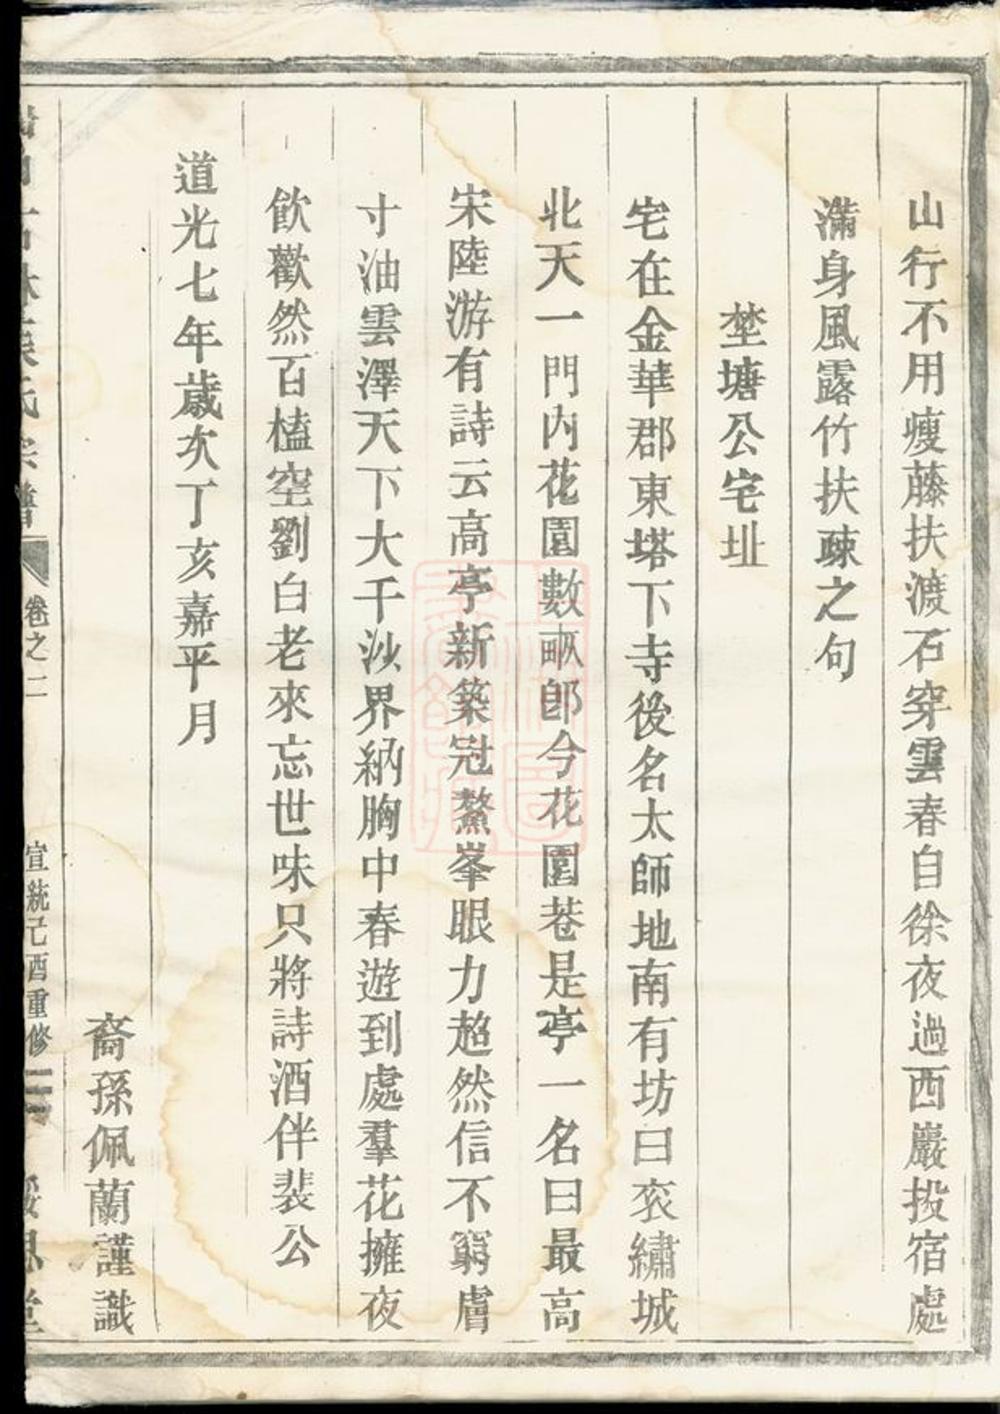 山行不用瘦藤扶渡石穿雲春自徐夜過西巖投宿處
滿身風露竹扶疎之句
埜塘公宅址
宅在金華郡東塔下寺後名太師地南有坊曰衮繡城
北天一門內花園數畝卽今花園巷是亭一名曰最高
宋陸游有詩云高亭新築冠鰲峯眼力超然信不窮膚
寸油雲澤天下大千沙界納胸中春遊到處羣花擁夜
飲歡然百榼空劉白老來忘世味只將詩酒伴裴公
道光七年歲次丁亥嘉平月
裔孫佩蘭謹識
氏宗譜 卷之二 宣統己酉重修